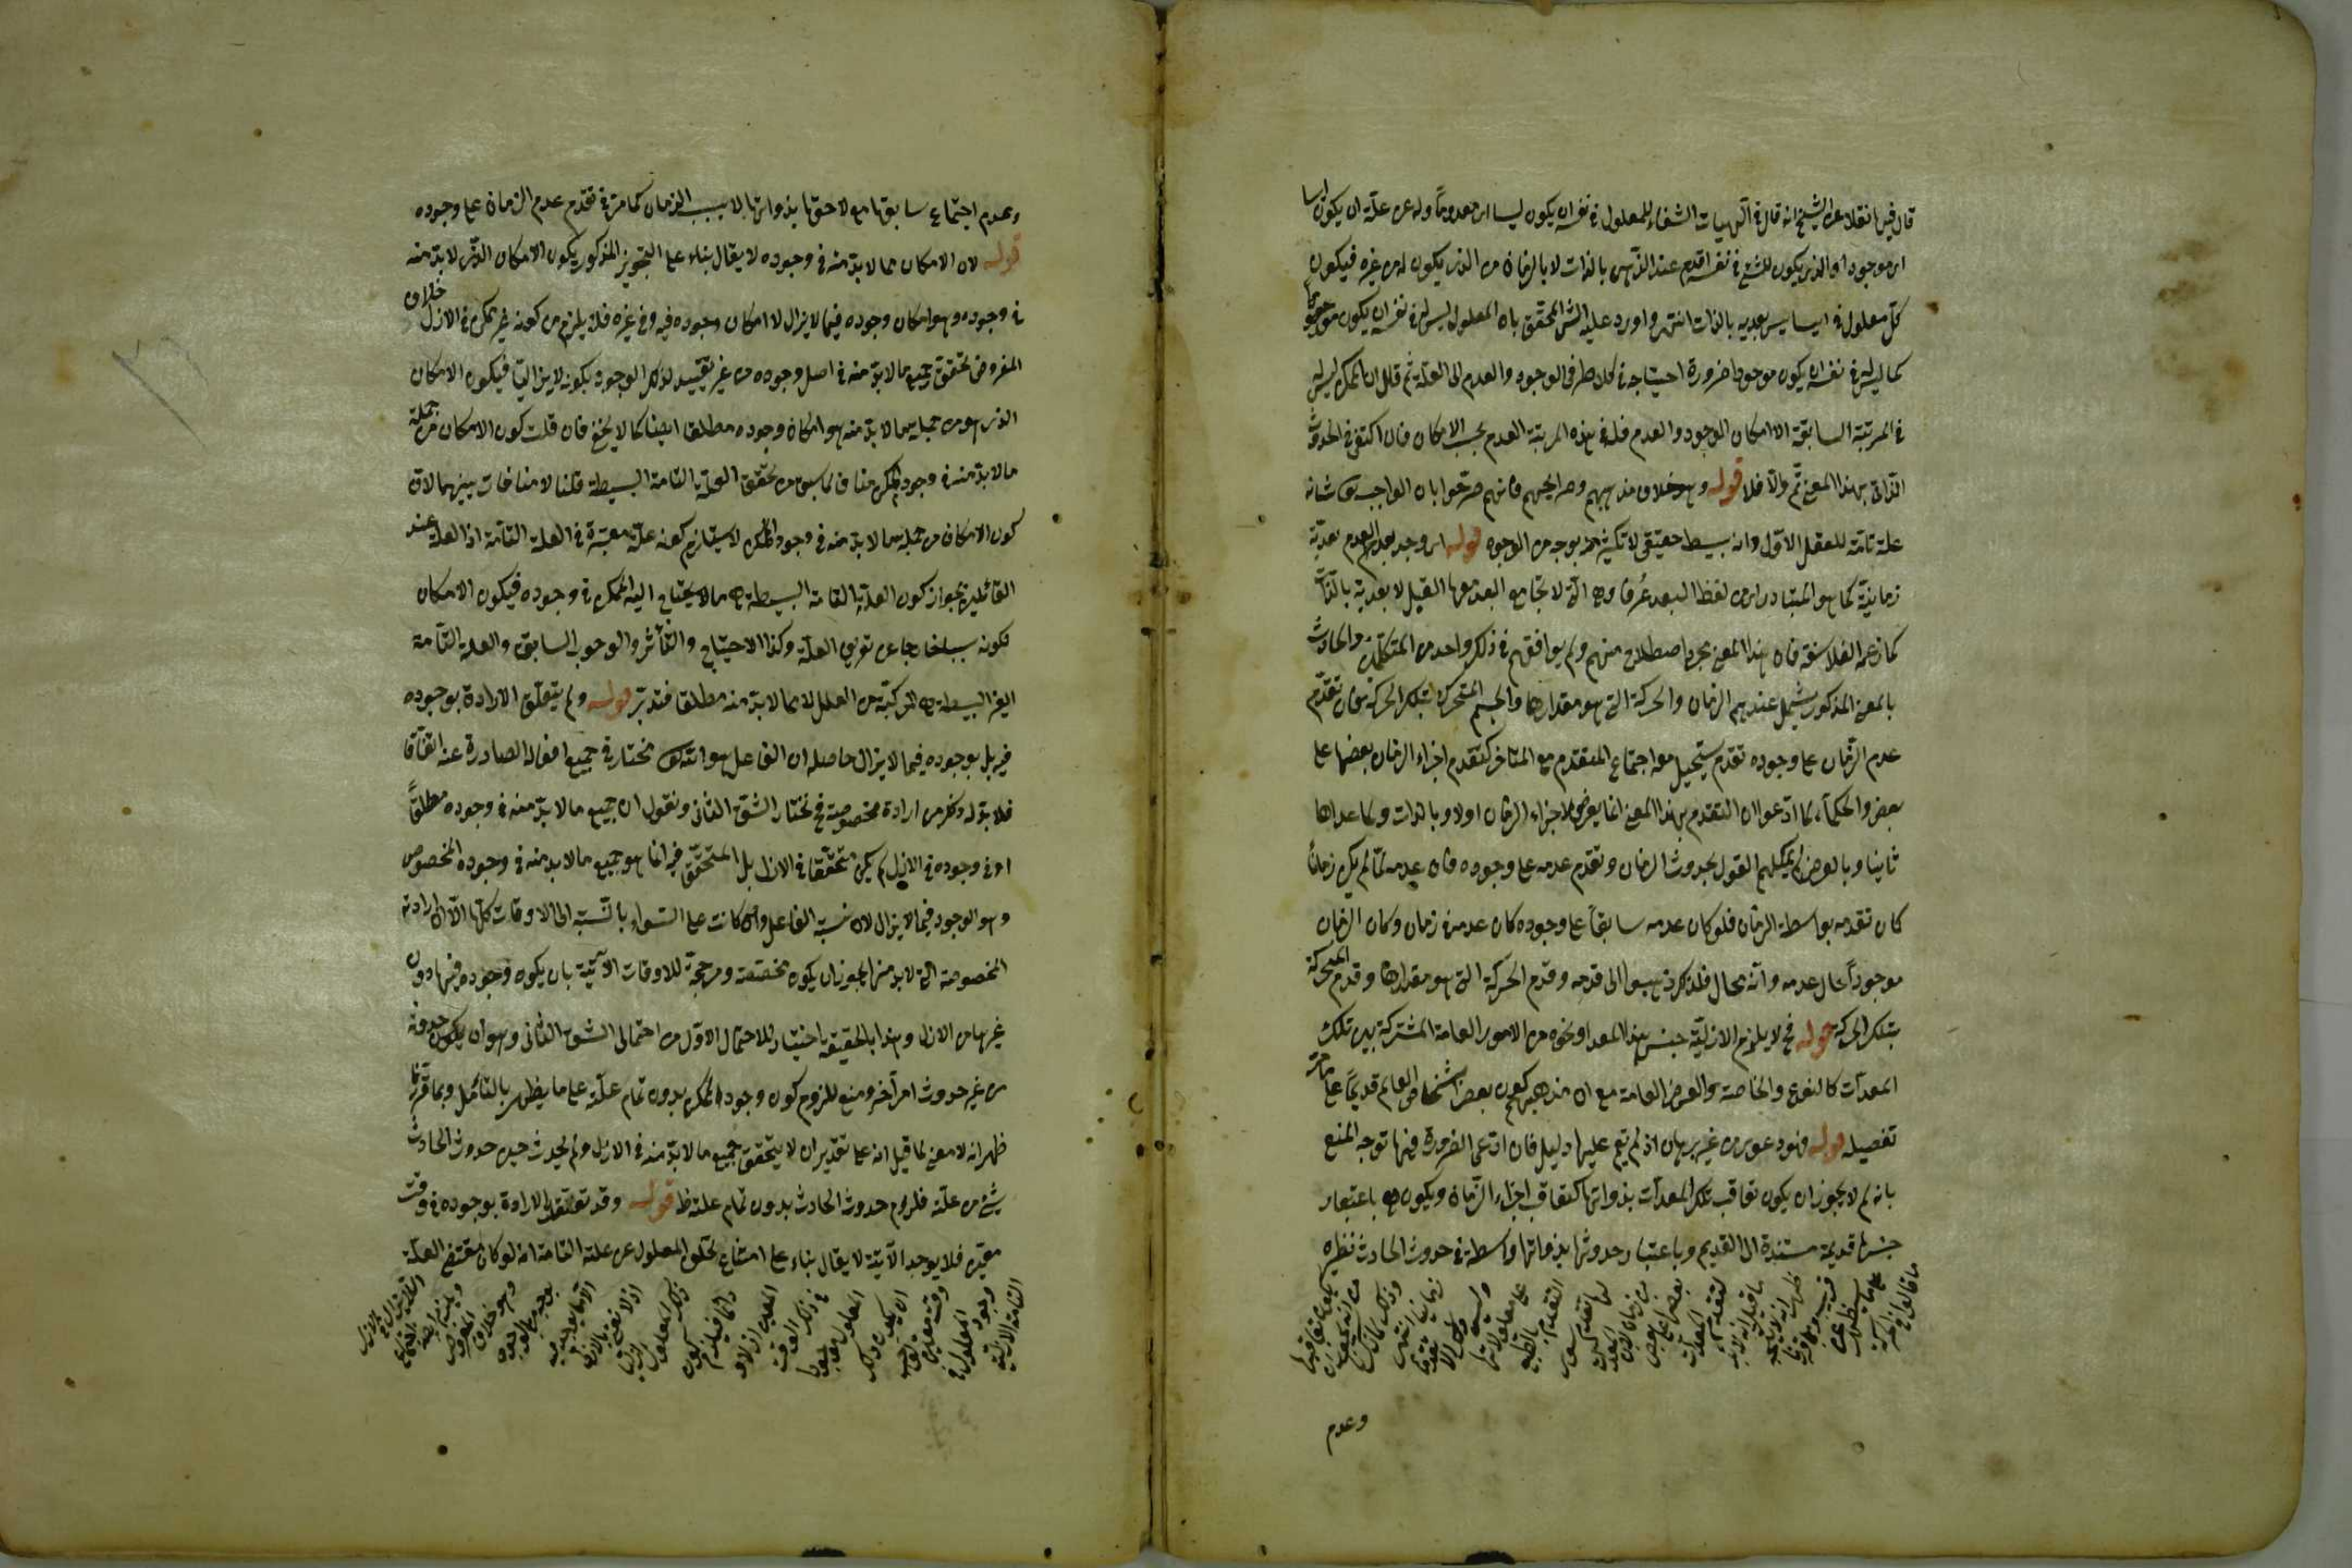 قال فيها نقلا عن الشيخ انه قال في آلهيات الشفاء للمعلول في نفسه ان يكون ليسا اي معدوما وله عن علته ان يكون ايسا
اي موجودا والذي يكون للشئ في نفسه اقدم عند الذهن بالذات لا بالزمان من الذي يكون له من غيره فيكون
كل معلول في ايسا بعد ليس بعدية بالذات انتهى واورد عليه الش المحقق بان المعلول ليس له في نفسه ان يكون معدوما
كما ليس له في نفسه ان يكون موجودا ضرورة احتياجه في كلا طرفي الوجود والعدم الى العلة ثم قال ان الممكن ليس له
في المرتبة السابقة الا امكان الوجود والعدم فله في هذه المرتبة العدم بحسب الامكان فان اكتفى في الحدوث
الذاتي بهذا المعنى تم والا فلا قوله وهو خلاف مذهبهم وصرايحهم فانهم صرحوا بان الواجب تعالى شانه
علة تامة للعقل الاول وانه بسيط حقيقي لا تكثر فيه بوجه من الوجوه قوله اي وجد بعد العدم بعدية
زمانية كما هو المتبادر من لفظ البعد عرفا وهي التي لا تجامع البعد معها القبل لا بعدية بالذات
كما زعمه الفلاسفة فان هذا المعنى مجرد اصطلاح منهم ولم يوافقهم في ذلك واحد من المتكلمين والحادث
بالمعنى المذكور يشمل عندهم الزمان والحركة التي هو مقدارها والجسم المتحرك بتلك الحركة فان تقدم
عدم الزمان على وجوده تقدم يستحيل معه اجتماع المتقدم مع المتاخر كتقدم اجزاء الزمان بعضها على
بعض والحكماء لما ادعوا ان التقدم بهذا المعنى انما يعرض لاجزاء الزمان اولا وبالذات ولما عداها
ثانيا وبالعرض لم يمكنهم القول بحدوث الزمان وتقدم عدمه على وجوده فان عدمه لما لم يكن زمانا
كان تقدمه بواسطة الزمان فلو كان عدمه سابقا على وجوده كان عدمه في زمان وكان الزمان
موجودا حال عدمه وانه محال فلذلك ذهبوا الى قدمه وقدم الحركة التي هو مقدارها وقدم المتحركة
بتلك الحركة قوله فح لا يلزم الا ازلية جنس هذا المعد او نحوه من الامور العامة المشتركة بين تلك
المعدات كالنوع والخاصة والعرض العامة مع ان مذهبهم كون بعض اشخاص العالم قديما على ما مر
تفصيله قوله فهو دعوى من غير برهان اذ لم يقم عليها دليل فان ادعى الضرورة فيها توجه المنع
بانه لم لا يجوز ان يكون تعاقب تلك المعدات بذواتها كتعاقب اجزاء الزمان ويكون هي باعتبار
جنسها قديمة مستندة الى القديم وباعتبار حدوثها بذواتها واسطة في حدوث الحادث نظيره
ما قالوا في الحركة
وعدم
وعدم اجتماع سابقها مع لاحقها بذواتها لا بسبب الزمان كما مر في تقدم عدم الزمان على وجوده
قوله لان الامكان مما لا بد منه في وجوده لا يقال بناء على التجويز المذكور يكون الامكان الذي لا بد منه
في وجوده هو امكان وجوده فيما لا يزال لا امكان وجوده فيه وفي غيره فلا يلزم من كونه غير ممكن في الازل خلاف
المفروض تحقق جميع ما لا بد منه في اصل وجوده من غير تقييد لذلك الوجود بكونه لا يزاليا فيكون الامكان
الذي هو من جملة ما لا بد منه هو امكان وجوده مطلقا ايضا كما لا يخفى فان قلت كون الامكان من جملة
ما لا بد منه في وجود الممكن مناف لما سبق من تحقق العلة التامة البسيطة قلنا لا منافات بينهما لان
كون الامكان من جملة ما لا بد منه في وجود الممكن لا يستلزم كونه علة معتبرة في العلة التامة اذ العلة عند
القائلين بجواز كون العلة التامة البسيطة هي ما لا يحتاج اليه الممكن في وجوده فيكون الامكان
لكونه سببا خارجا عن تعريف العلة وكذا الاحتياج والتأثر والوجوب السابق والعلة التامة
الغير البسيطة هي المركبة من العلل لا مما لا بد منه مطلقا فتدبر قوله ولم يتعلق الارادة بوجوده
فيه بل بوجوده فيما لا يزال حاصله ان الفاعل هو الله تعالى مختار في جميع افعاله الصادرة عنه اتفاقا
فلا بد له في كل من ارادة مخصوصة فح نختار الشق الثاني ونقول ان جميع ما لا بد منه في وجوده مطلقا
او في وجوده في الازل لم يكن متحققا في الازل بل المتحقق فيه انما هو جميع ما لا بد منه في وجوده المخصوص
وهو الوجود فيما لا يزال لان نسبة الفاعل وان كانت على السواء بالنسبة الى الاوقات كلها الا ان ارادته
المخصوصة التي لا بد منها يجوز ان يكون مخصصة ومرجحة للاوقات الآتية بان يكون وجوده فيها دون
غيرها من الازل وهذا بالحقيقة اختيار للاحتمال الاول من احتمالي الشق الثاني وهو ان يكون حدوثه
من غير حدوث امر آخر ومنع للزوم كون وجود الممكن بدون تمام علته على ما يظهر بالتأمل وبما قررنا
ظهر انه لا معنى لما قيل انه على تقدير ان لا يتحقق جميع ما لا بد منه في الازل ولم يحدث حين حدوث الحادث
شئ من علته فلزوم حدوث الحادث بدون تمام علته ظ قوله وقد تعلقت الارادة بوجوده في وقت
معين فلا يوجد الا فيه لا يقال بناء على امتناع تخلف المعلول عن علته التامة انه لو كان مقتضى العلة
التامة الازلية
وجود المعلول في
وقت معين